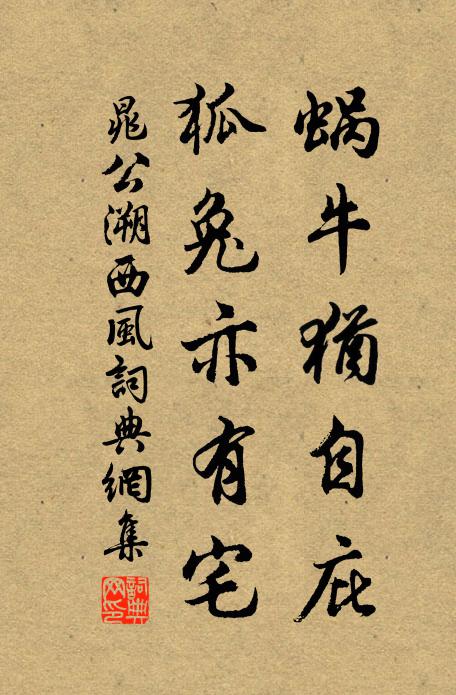 蜗牛犹自庇
狐兔亦有宅
晁公溯西風詞典網集
詞典网印